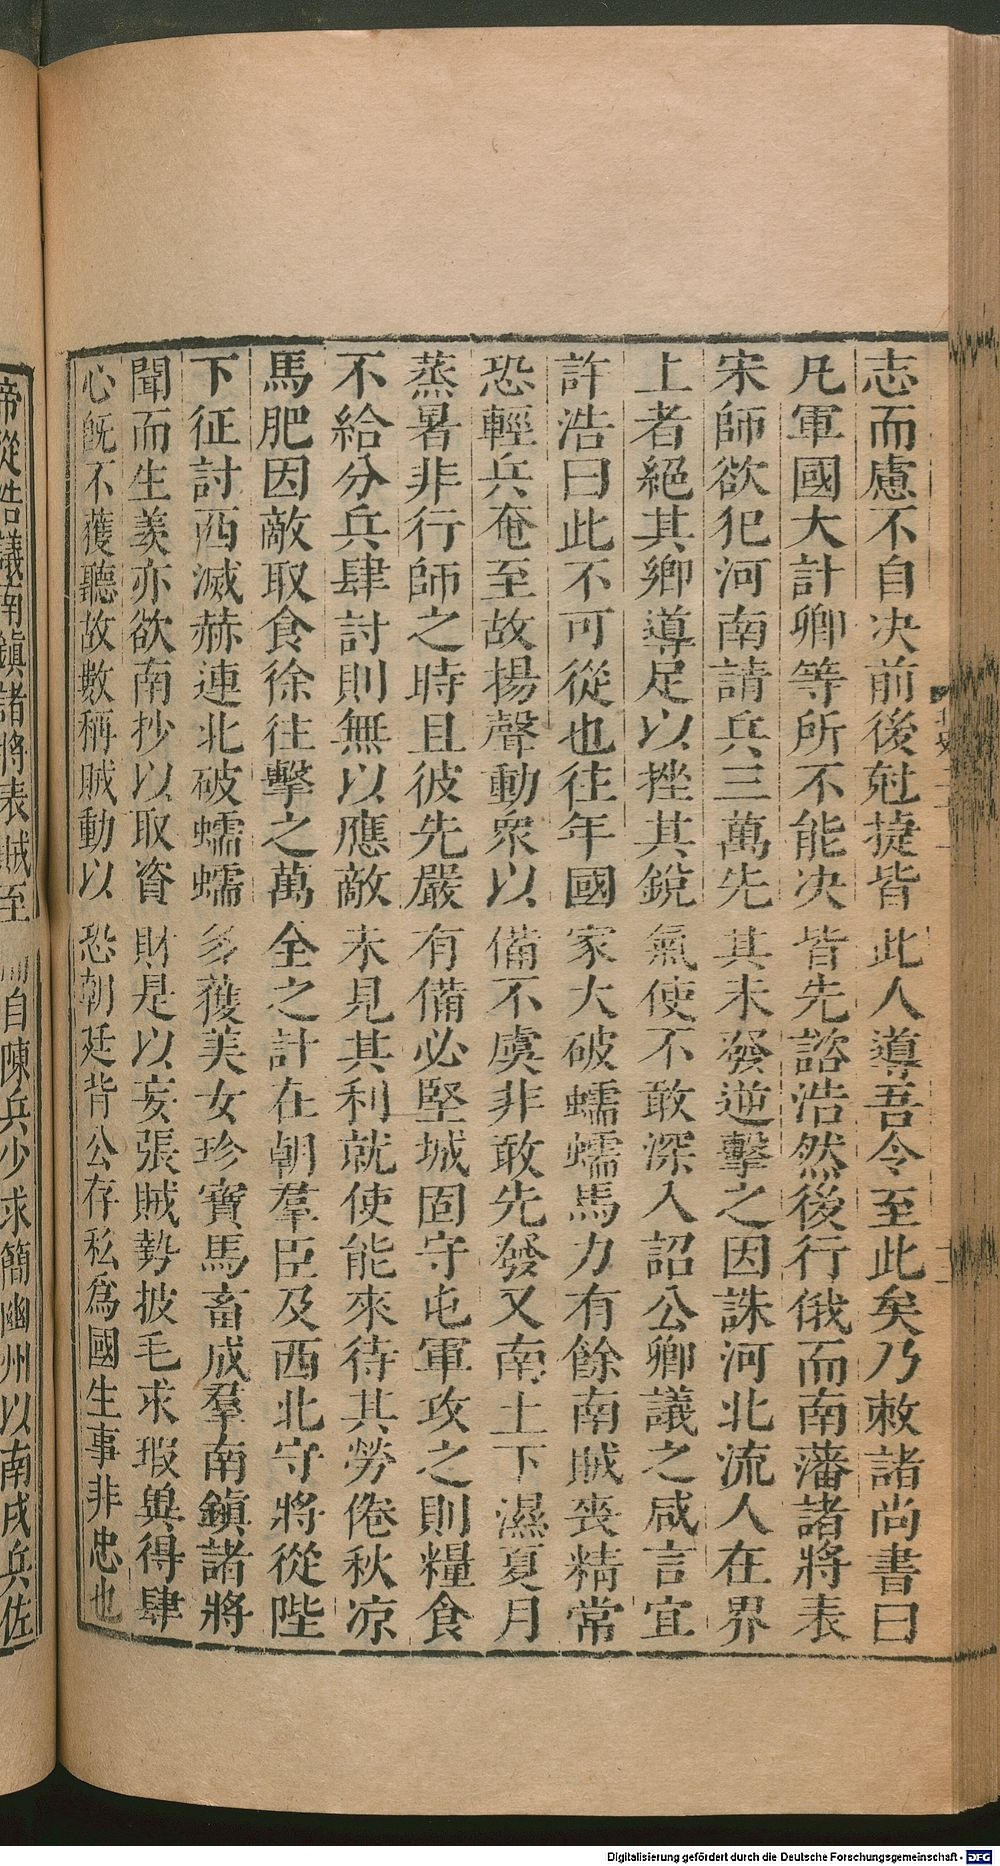 志而慮不自决前後尅捷皆此人導吾令至此矣乃敕諸尚書曰
凡軍國大計卿等所不能决皆先諮浩然後行俄而南藩諸將表
宋師欲犯河南請兵三萬先其未發逆擊之因誅河北流人在界
上者絕其鄉導足以挫其銳氣使不敢深入詔公卿議之咸言宜
許浩曰此不可從也往年國家大破蠕蠕馬力有餘南賊喪精常
恐輕兵奄至故揚聲動衆以備不虞非敢先發又南土下濕夏月
蒸暑非行師之時且彼先嚴有備必堅城固守屯軍攻之則糧食
不給分兵肆討則無以應敵未見其利就使能來待其勞倦秋凉
馬肥因敵取食徐往擊之萬全之計在朝羣臣及西北守將從陛
下征討西滅赫連北破蠕蠕多獲美女珍寶馬畜成羣南鎮諸將
聞而生羨亦欲南抄以取資財是以妄張賊勢披毛求瑕與得肆
心旣不獲聽故數稱賊動以恐朝廷背公存私爲國生事非忠也
帝從浩議南鎮諸將表賊至而自陳兵少求簡幽州以南戍兵佐
Digitalisierung gefördert durch die Deutsche Forschungsgemeinschaft - DFG